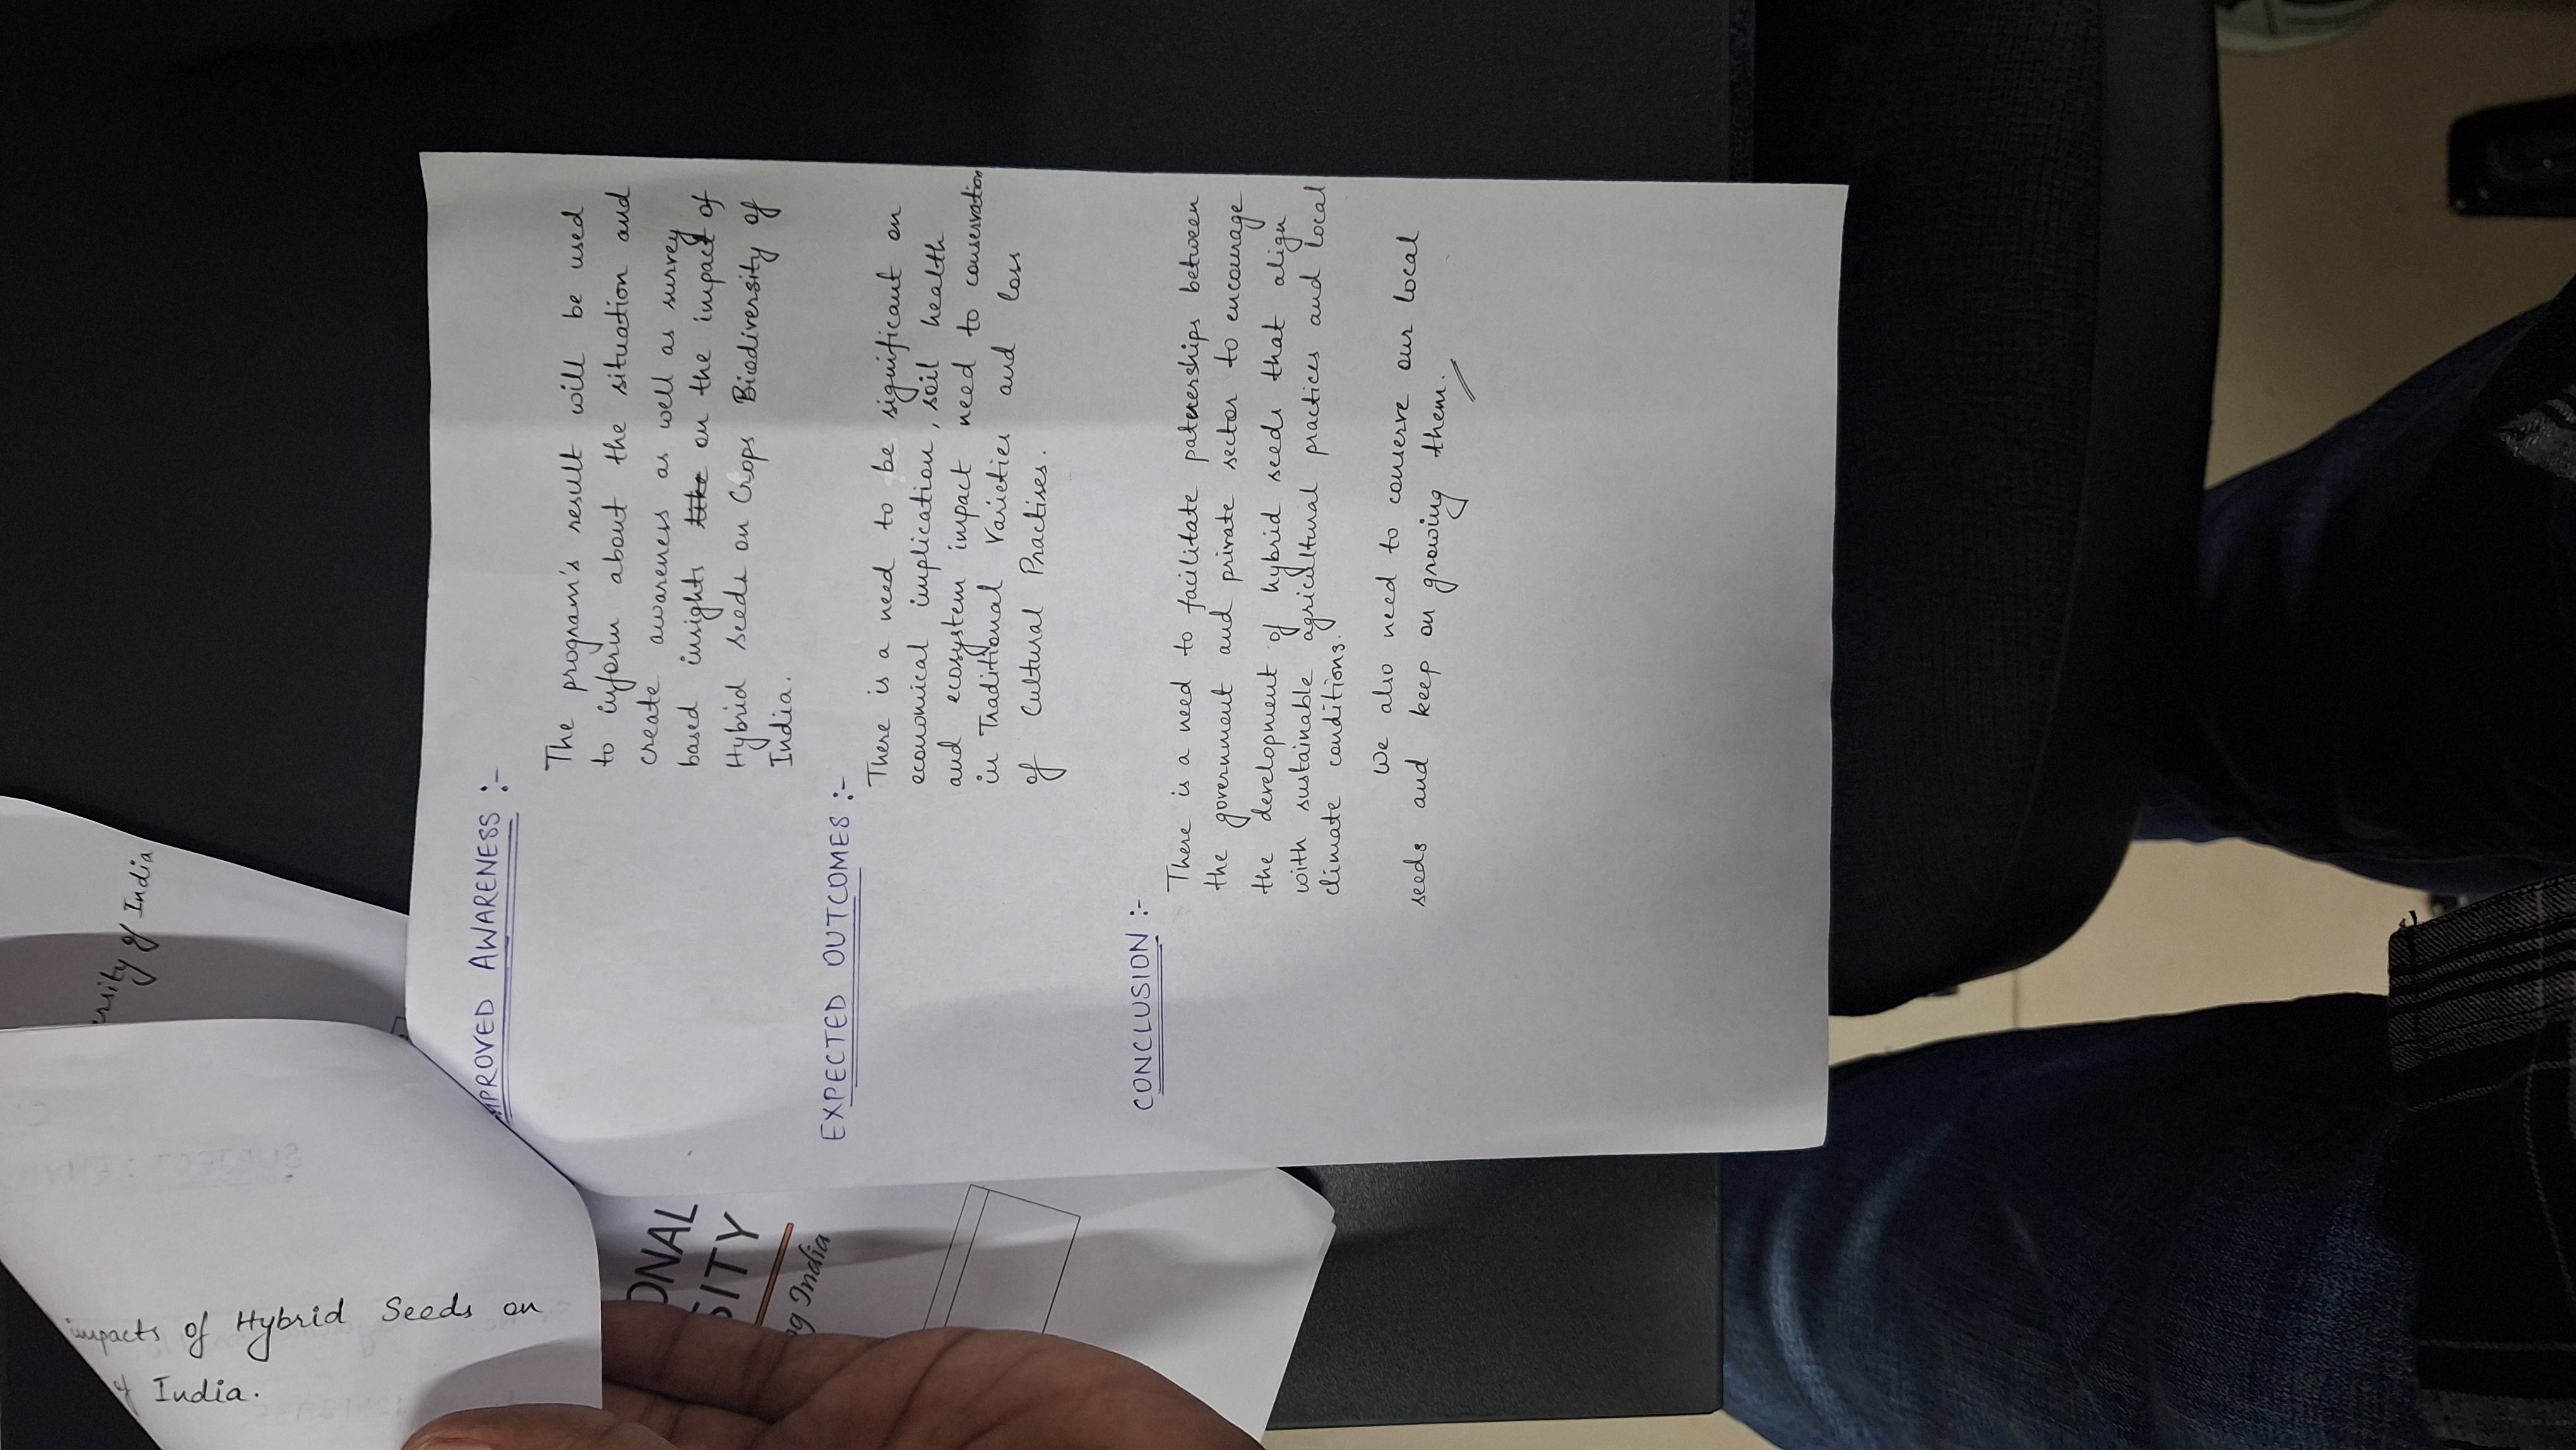 impacts of Hybrid Seeds on
of India.
ersity of India
ONAL
SITY
ng India
MPROVED AWARENESS :-
The program's result will be used
to inform about the situation and
create awareness as well as survey
based insights like on the impact of
Hybrid seeds on Crops Biodiversity of
India.
EXPECTED OUTCOMES :-
There is a need to be significant on
economical implication, soil health
and ecosystem impact need to conservation
in Traditional Varieties and loss
of Cultural Practises.
CONCLUSION :-
There is a need to facilitate patnerships between
the government and private sector to encourage
the development of hybrid seeds that align
with sustainable agricultural practices and local
climate conditions.
We also need to conserve our local
seeds and keep on growing them.